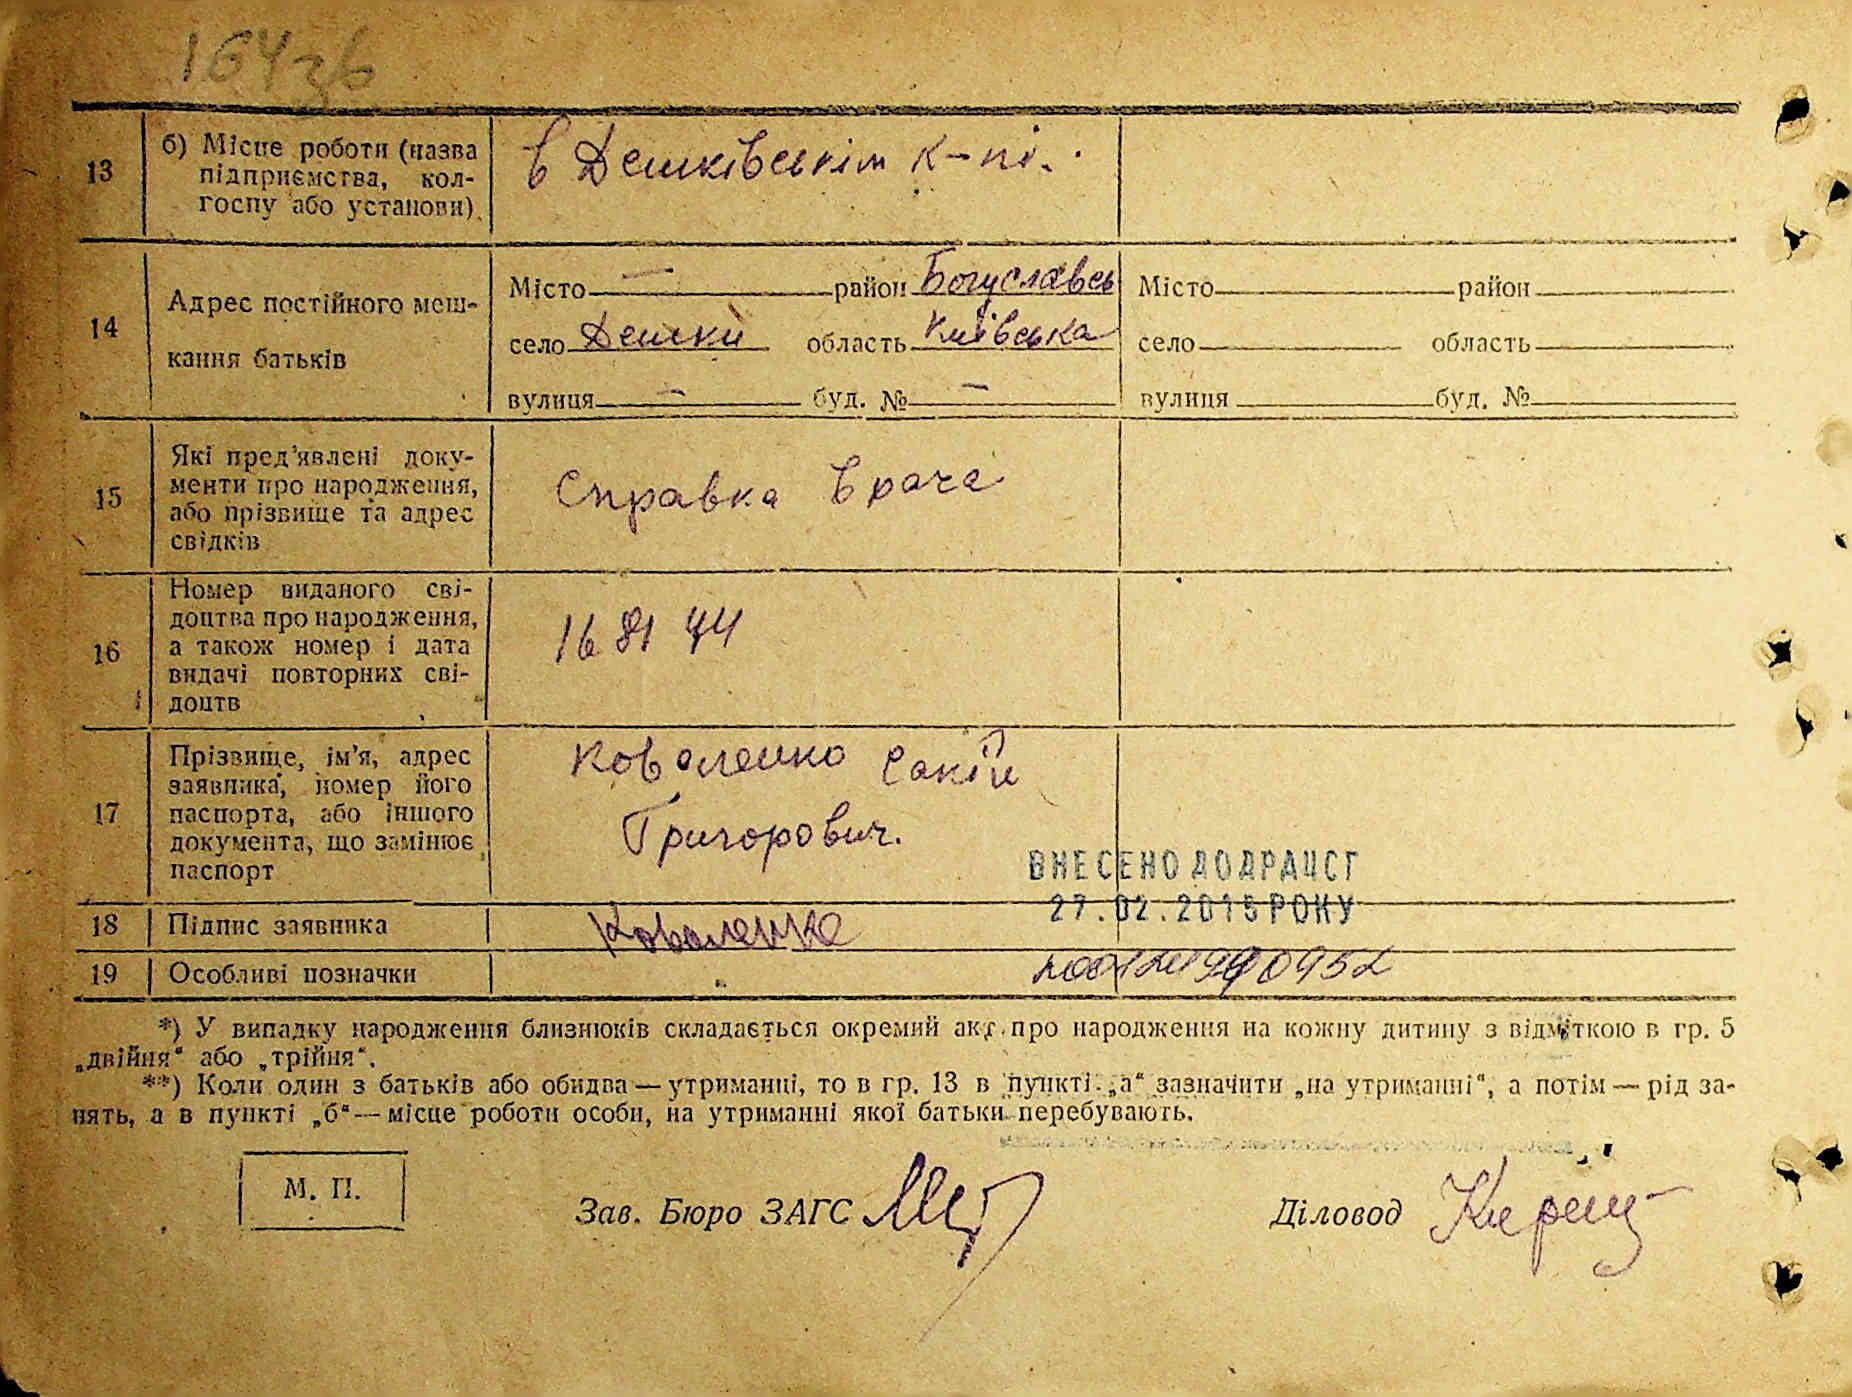 164зв
13
б) Місце роботи (назва
підприємства, кол-
госпу або установи)
в Дешківськім к-пі.
14
Адрес постійного меш-
кання батьків
Місто — район Богуславсь
село Дешки область Київська
вулиця — буд. № —
Місто район
село область
вулиця буд. №
15
Які пред'явлені доку-
менти про народження,
або прізвище та адрес
свідків
Справка врача
16
Номер виданого сві-
доцтва про народження,
а також номер і дата
видачі повторних сві-
доцтв
17
Прізвище, ім'я, адрес
заявника, номер його
паспорта, або іншого
документа, що замінює
паспорт
Коваленко
Григорович.
ВНЕСЕНО ДО ДРАЦСГ
27.02.2015 РОКУ
18
Підпис заявника
Коваленко
19
Особливі позначки
*) У випадку народження близнюків складається окремий акт про народження на кожну дитину з відміткою в гр. 5
„двійня“ або „трійня“.
**) Коли один з батьків або обидва — утриманні, то в гр. 13 в пункті „а“ зазначити „на утриманні“, а потім — рід за-
нять, а в пункті „б“ — місце роботи особи, на утриманні якої батьки перебувають.
М. П.
Зав. Бюро ЗАГС
Діловод